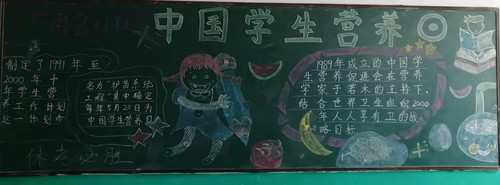 5月20日
中国学生营养日
制定了1991年至
2000年十
年学生营
养工作计划
这一计划
名为"护苗系统
工程"其中确定
每年5月20日为
中国学生营养日
1989年成立的中国学
生营养促进会在营养
学家于若木的主持下,
结合世界卫生组织2000
年人人享有卫的战
略目标
体考必胜